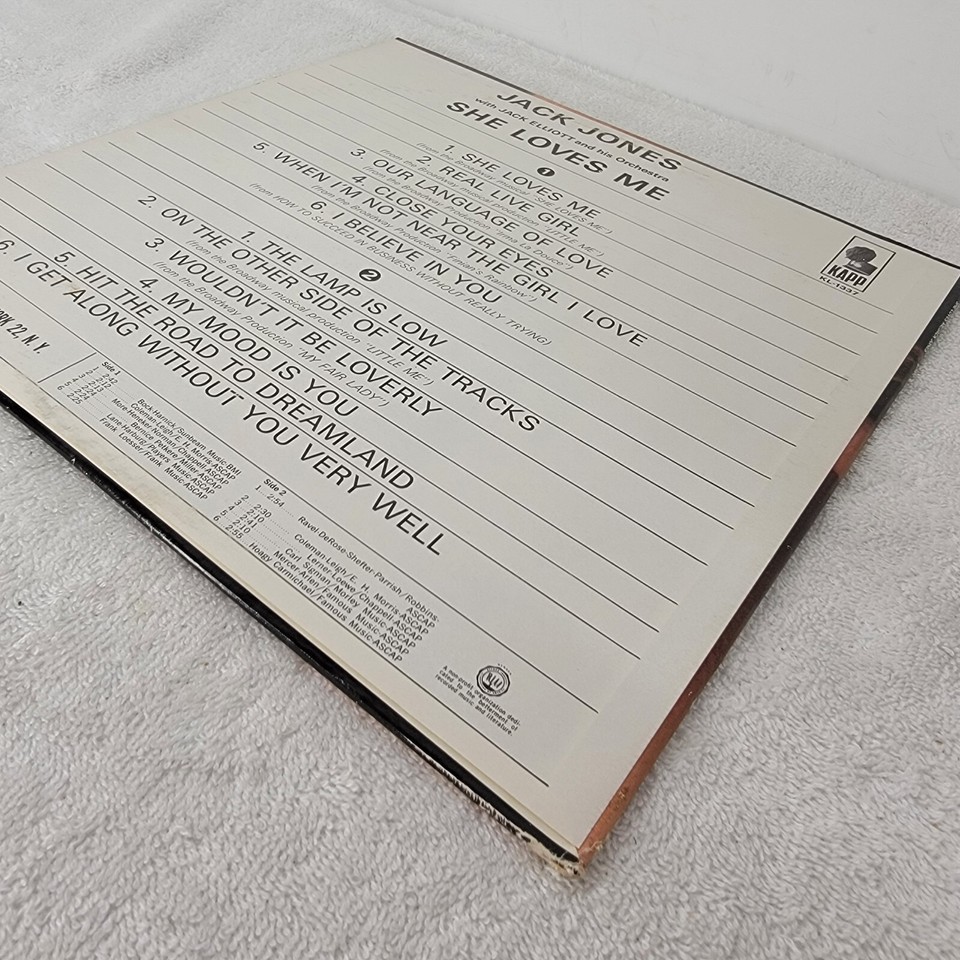 JACK JONES
with JACK ELLIOTT and his Orchestra
SHE LOVES ME
1
1. SHE LOVES ME
(from the Broadway musical "SHE LOVES ME")
2. REAL LIVE GIRL
(from the Broadway musical production "LITTLE ME")
3. OUR LANGUAGE OF LOVE
(from the Broadway Production "Irma La Douce")
4. CLOSE YOUR EYES
5. WHEN I'M NOT NEAR THE GIRL I LOVE
(from the Broadway Production "Finian's Rainbow")
6. I BELIEVE IN YOU
(from HOW TO SUCCEED IN BUSINESS WITHOUT REALLY TRYING)
2
1. THE LAMP IS LOW
2. ON THE OTHER SIDE OF THE TRACKS
(from the Broadway musical production "LITTLE ME")
3. WOULDN'T IT BE LOVERLY
(from the Broadway Production "MY FAIR LADY")
4. MY MOOD IS YOU
5. HIT THE ROAD TO DREAMLAND
6. I GET ALONG WITHOUT YOU VERY WELL
KAPP
KL-1337
22, N.Y.
Side 1
1 2:42
2 2:12
Bock-Harnick/Sunbeam Music-BMI
Coleman-Leigh/E. H. Morris-ASCAP
More-Heneker/Norman/Chappell-ASCAP
Bernice Petkere/Miller-ASCAP
Lane-Harburg/Players Music-ASCAP
Frank Loesser/Frank Music-ASCAP
Side 2
1 2:54 Ravel-DeRose-Shefter-Parrish/Robbins-
ASCAP
2 2:30 Coleman-Leigh/E. H. Morris-ASCAP
3 2:10 Lerner-Loewe/Chappell-ASCAP
4 2:41 Carl Sigman/Morley Music-ASCAP
5 2:10 Mercer-Arlen/Famous Music-ASCAP
6 2:55 Hoagy Carmichael/Famous Music-ASCAP
A non-profit organization dedi-
cated to the betterment of
recorded music and literature.